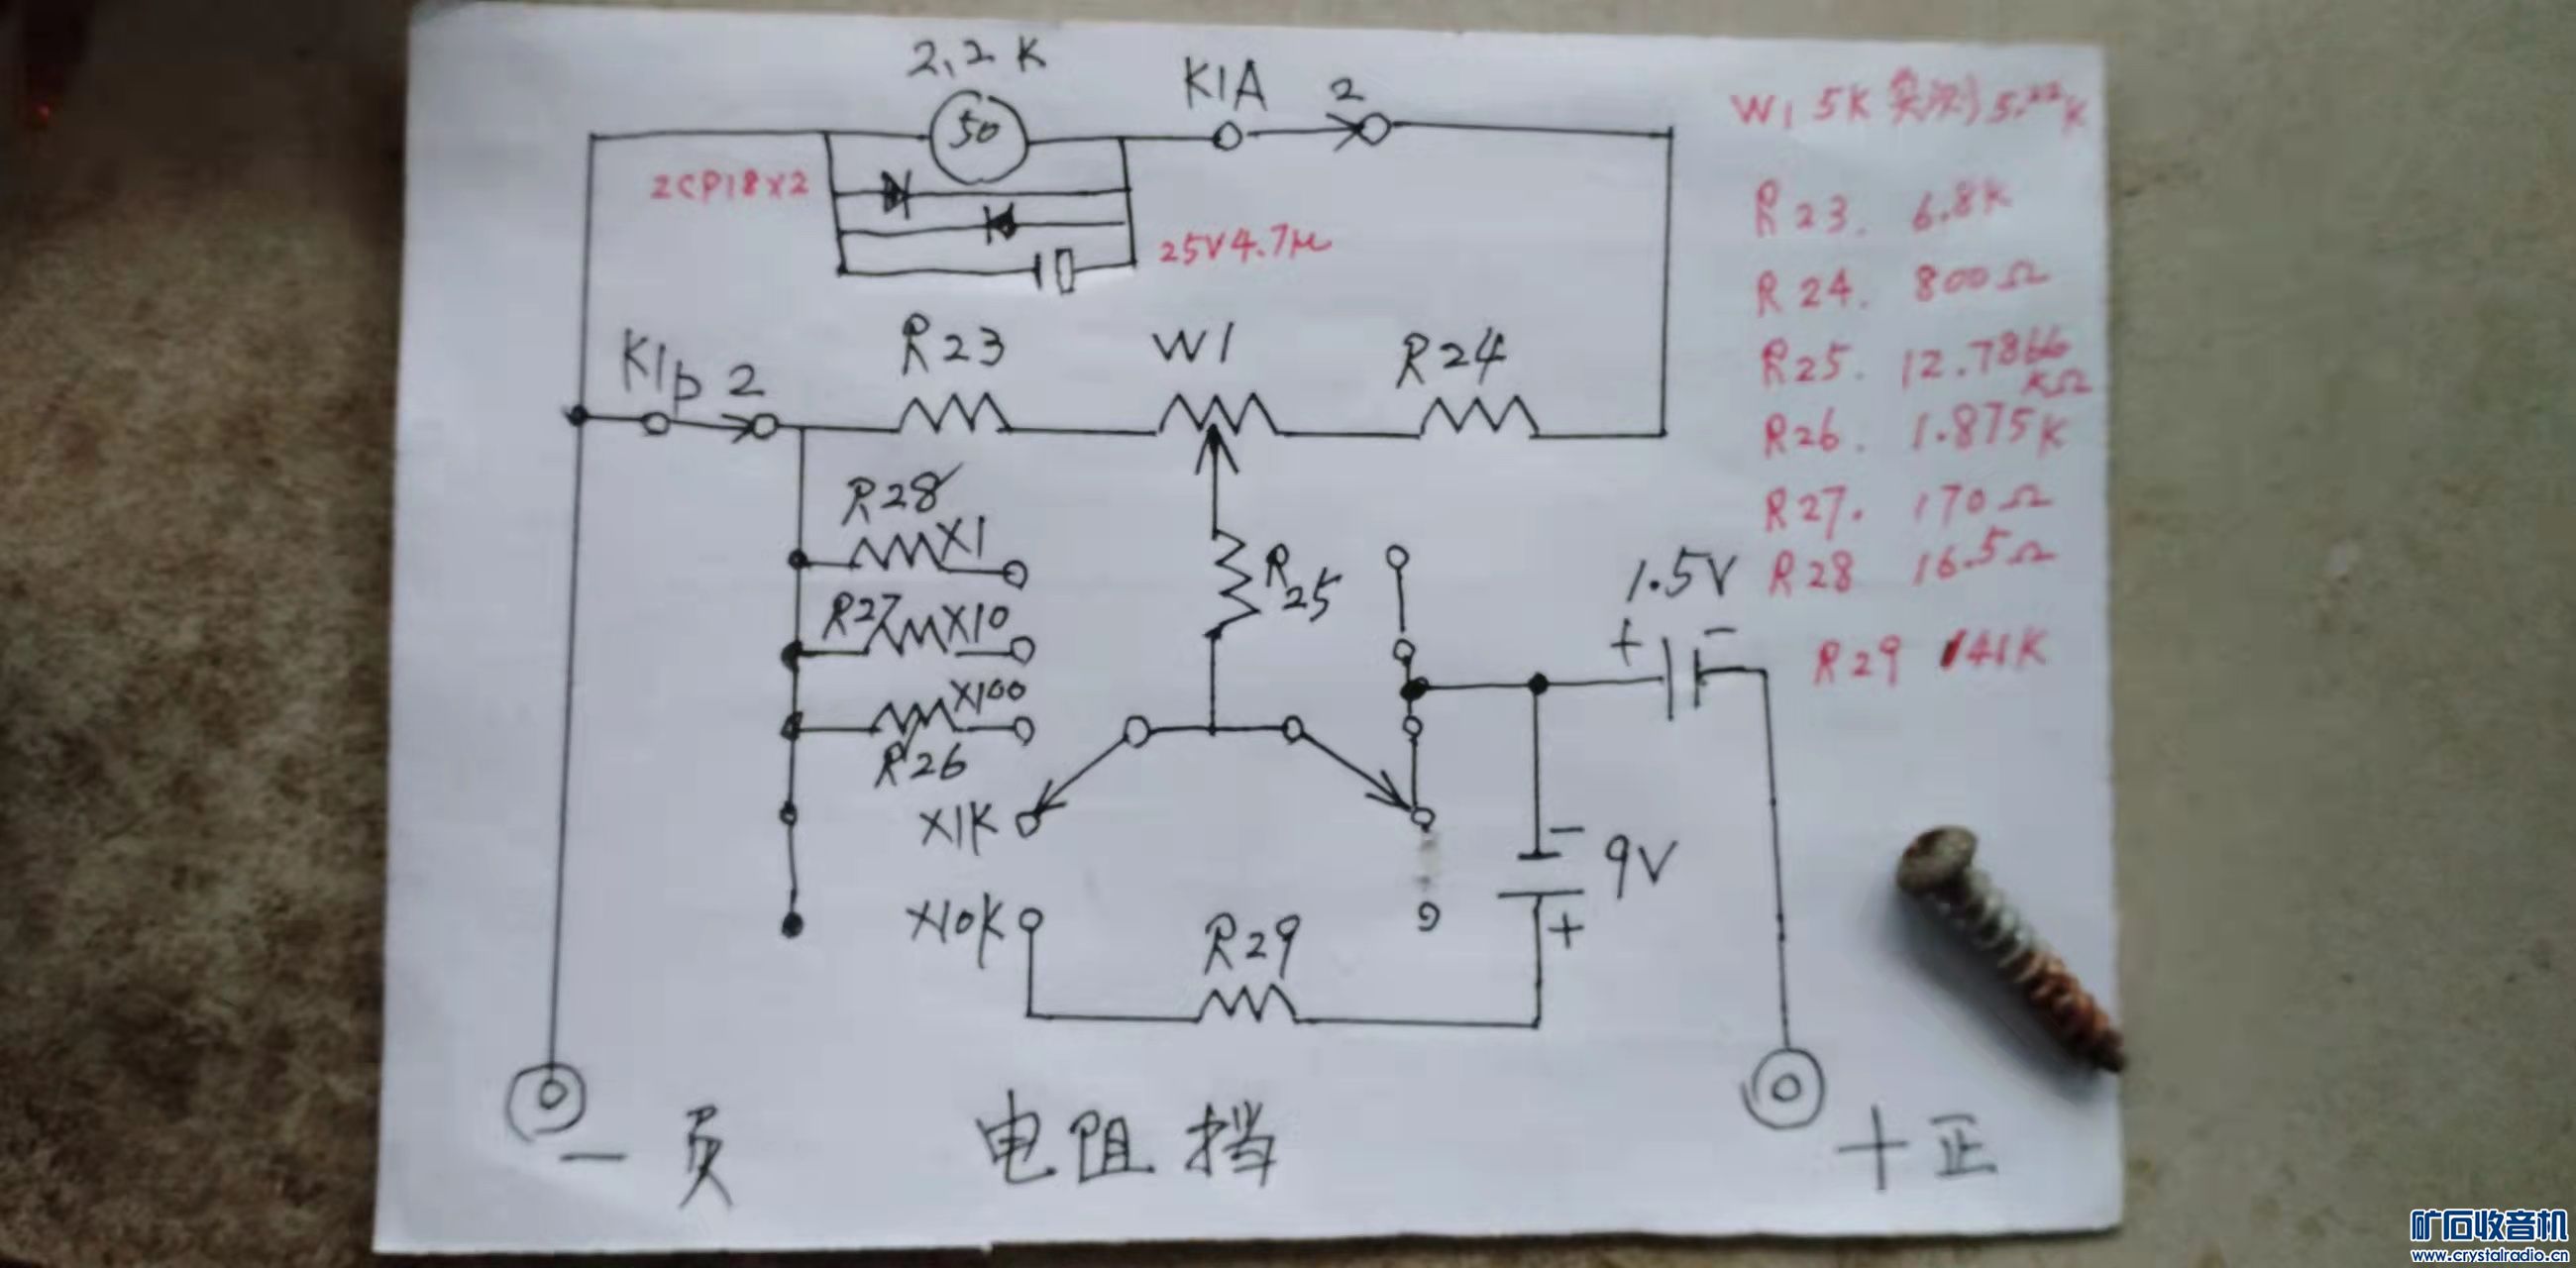 2.2K
50
K1A
2
2CP18X2
25V4.7μ
K1b 2
R23
W1
R24
R28
X1
R27
X10
X100
R26
R25
X1K
X10K
R29
1.5V
+ -
-
9V
+
- 负
电阻挡
+ 正
W1 5K 实测 5.22K
R23. 6.8K
R24. 800Ω
R25. 12.7866KΩ
R26. 1.875K
R27. 170Ω
R28 16.5Ω
R29 141K
矿石收音机
www.crystalradio.cn